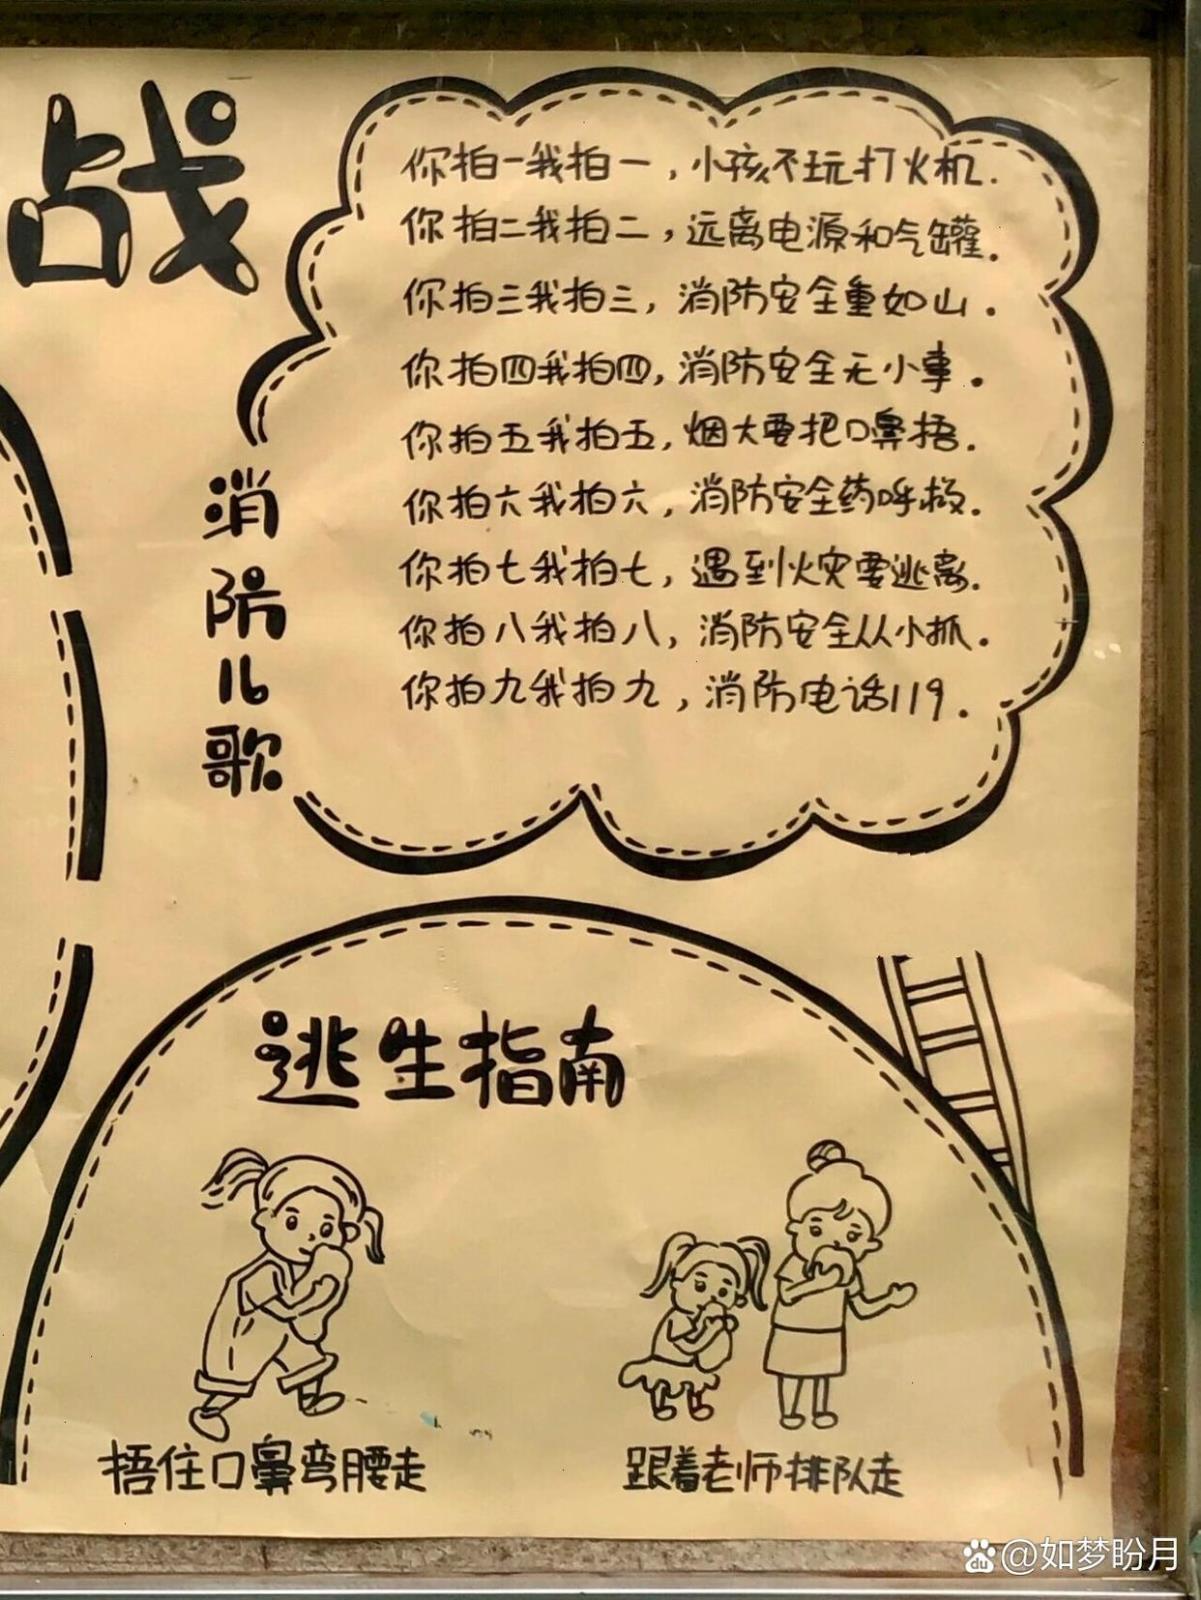 战
你拍一我拍一，小孩不玩打火机.
你拍二我拍二，远离电源和气罐.
你拍三我拍三，消防安全重如山.
你拍四我拍四，消防安全无小事.
你拍五我拍五，烟大要把口鼻捂.
你拍六我拍六，消防安全药呼救.
你拍七我拍七，遇到火灾要逃离.
你拍八我拍八，消防安全从小抓.
你拍九我拍九，消防电话119.
消防儿歌
逃生指南
捂住口鼻弯腰走
跟着老师排队走
du @如梦盼月